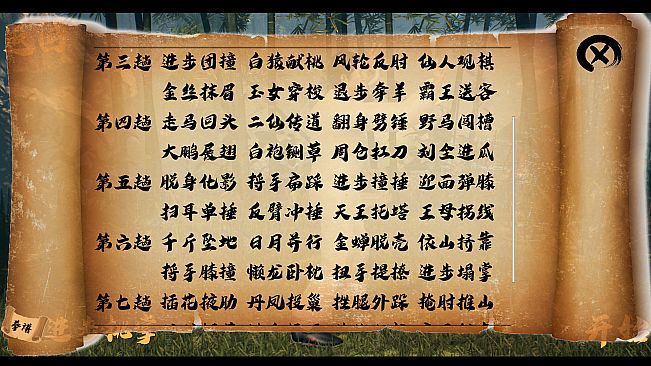 第三趟 进步团撞 白猿献桃 风轮反肘 仙人观棋
金丝抹眉 玉女穿梭 退步牵羊 霸王送客
第四趟 走马回头 二仙传道 翻身劈锤 野马闯槽
大鹏展翅 白袍铡草 周仓扛刀 刘全进瓜
第五趟 脱身化影 捋手扁踩 进步撞捶 迎面弹膝
扫耳单捶 反臂冲捶 天王托塔 王母拐线
第六趟 千斤坠地 日月并行 金蝉脱壳 依山挤靠
捋手膝撞 懒龙卧枕 扭手提撩 进步塌掌
第七趟 插花掖肋 丹凤投巢 挫腿外踩 掩肘推山